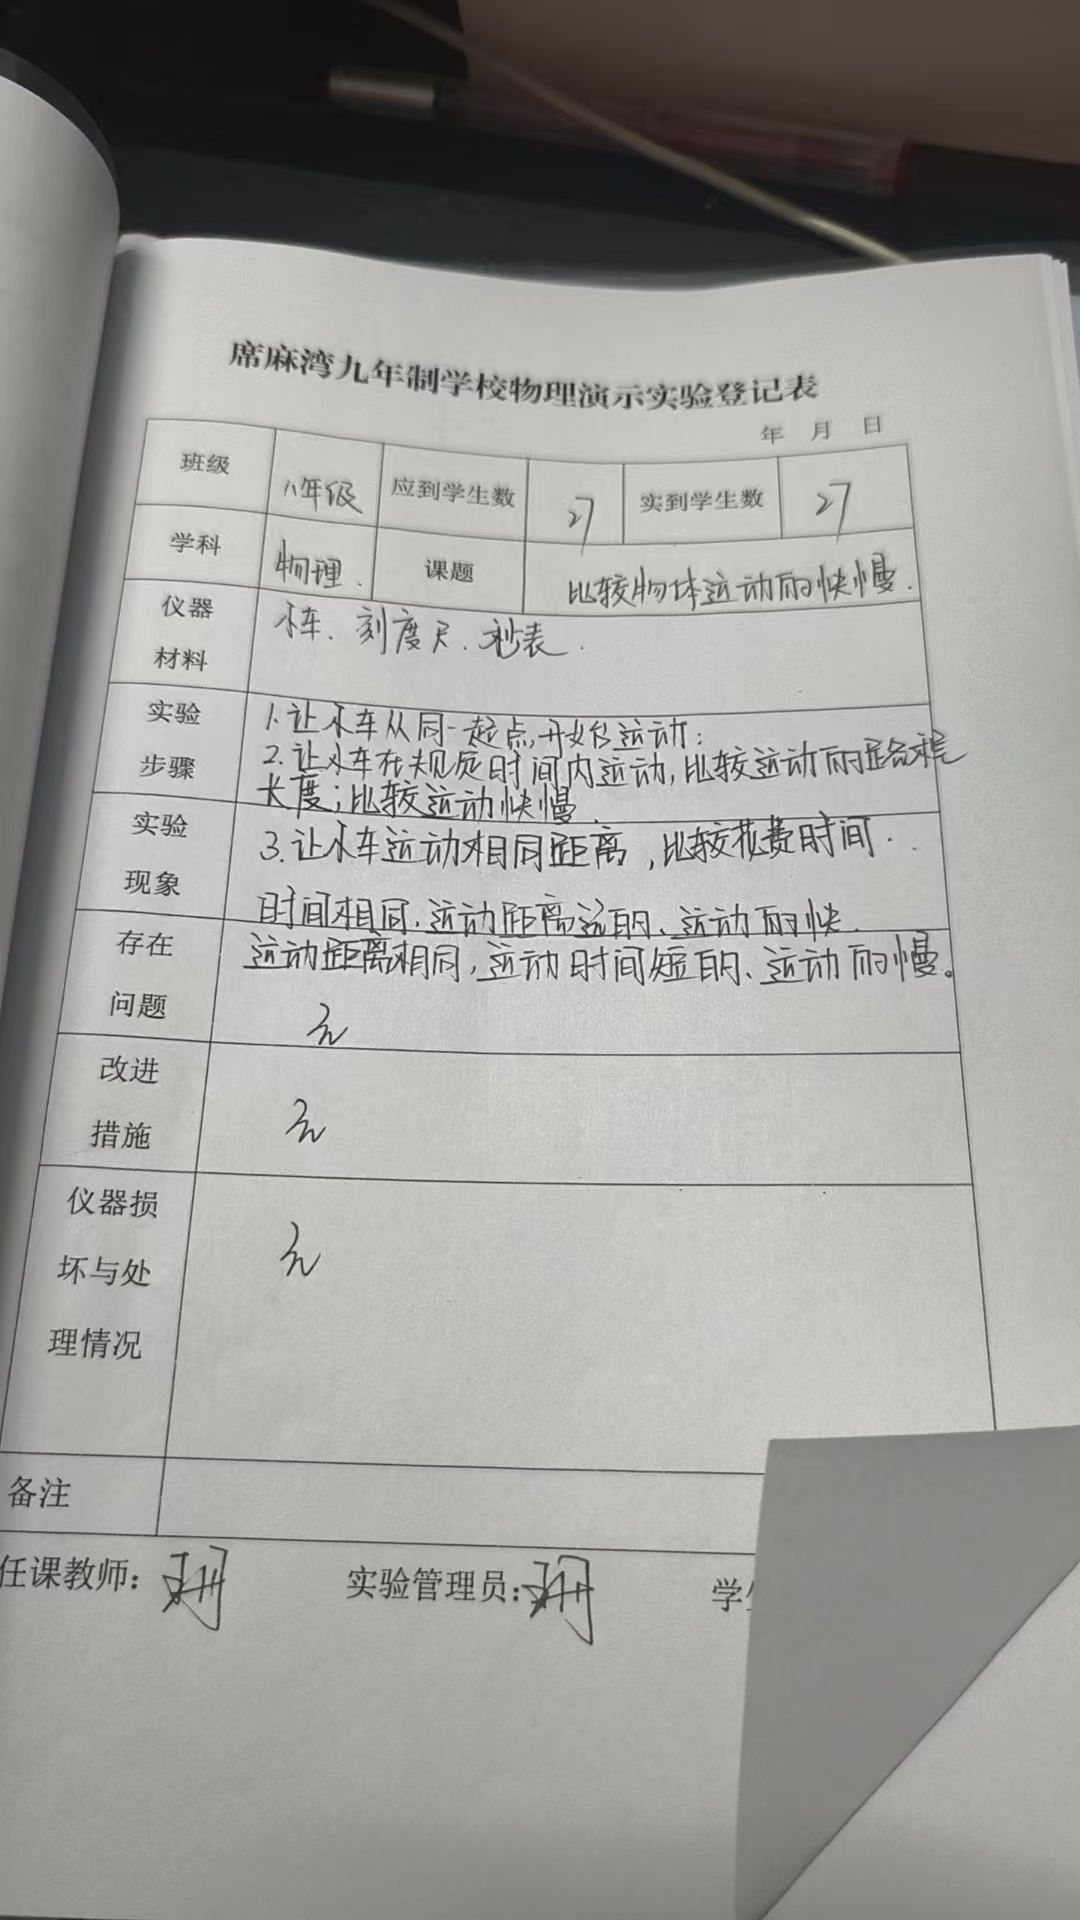 席麻湾九年制学校物理演示实验登记表
年 月 日
班级 八年级 应到学生数 27 实到学生数 27
学科 物理. 课题 比较物体运动的快慢.
仪器材料 小车、刻度尺、秒表.
实验步骤 1.让小车从同一起点,开始运动;
2.让小车在规定时间内运动,比较运动的路程
长度;比较运动快慢.
3.让小车运动相同距离,比较花费时间.
实验现象 时间相同,运动距离远的、运动的快.
运动距离相同,运动时间短的、运动的慢。
存在问题 无
改进措施 无
仪器损坏与处理情况 无
备注
任课教师: 实验管理员: 学